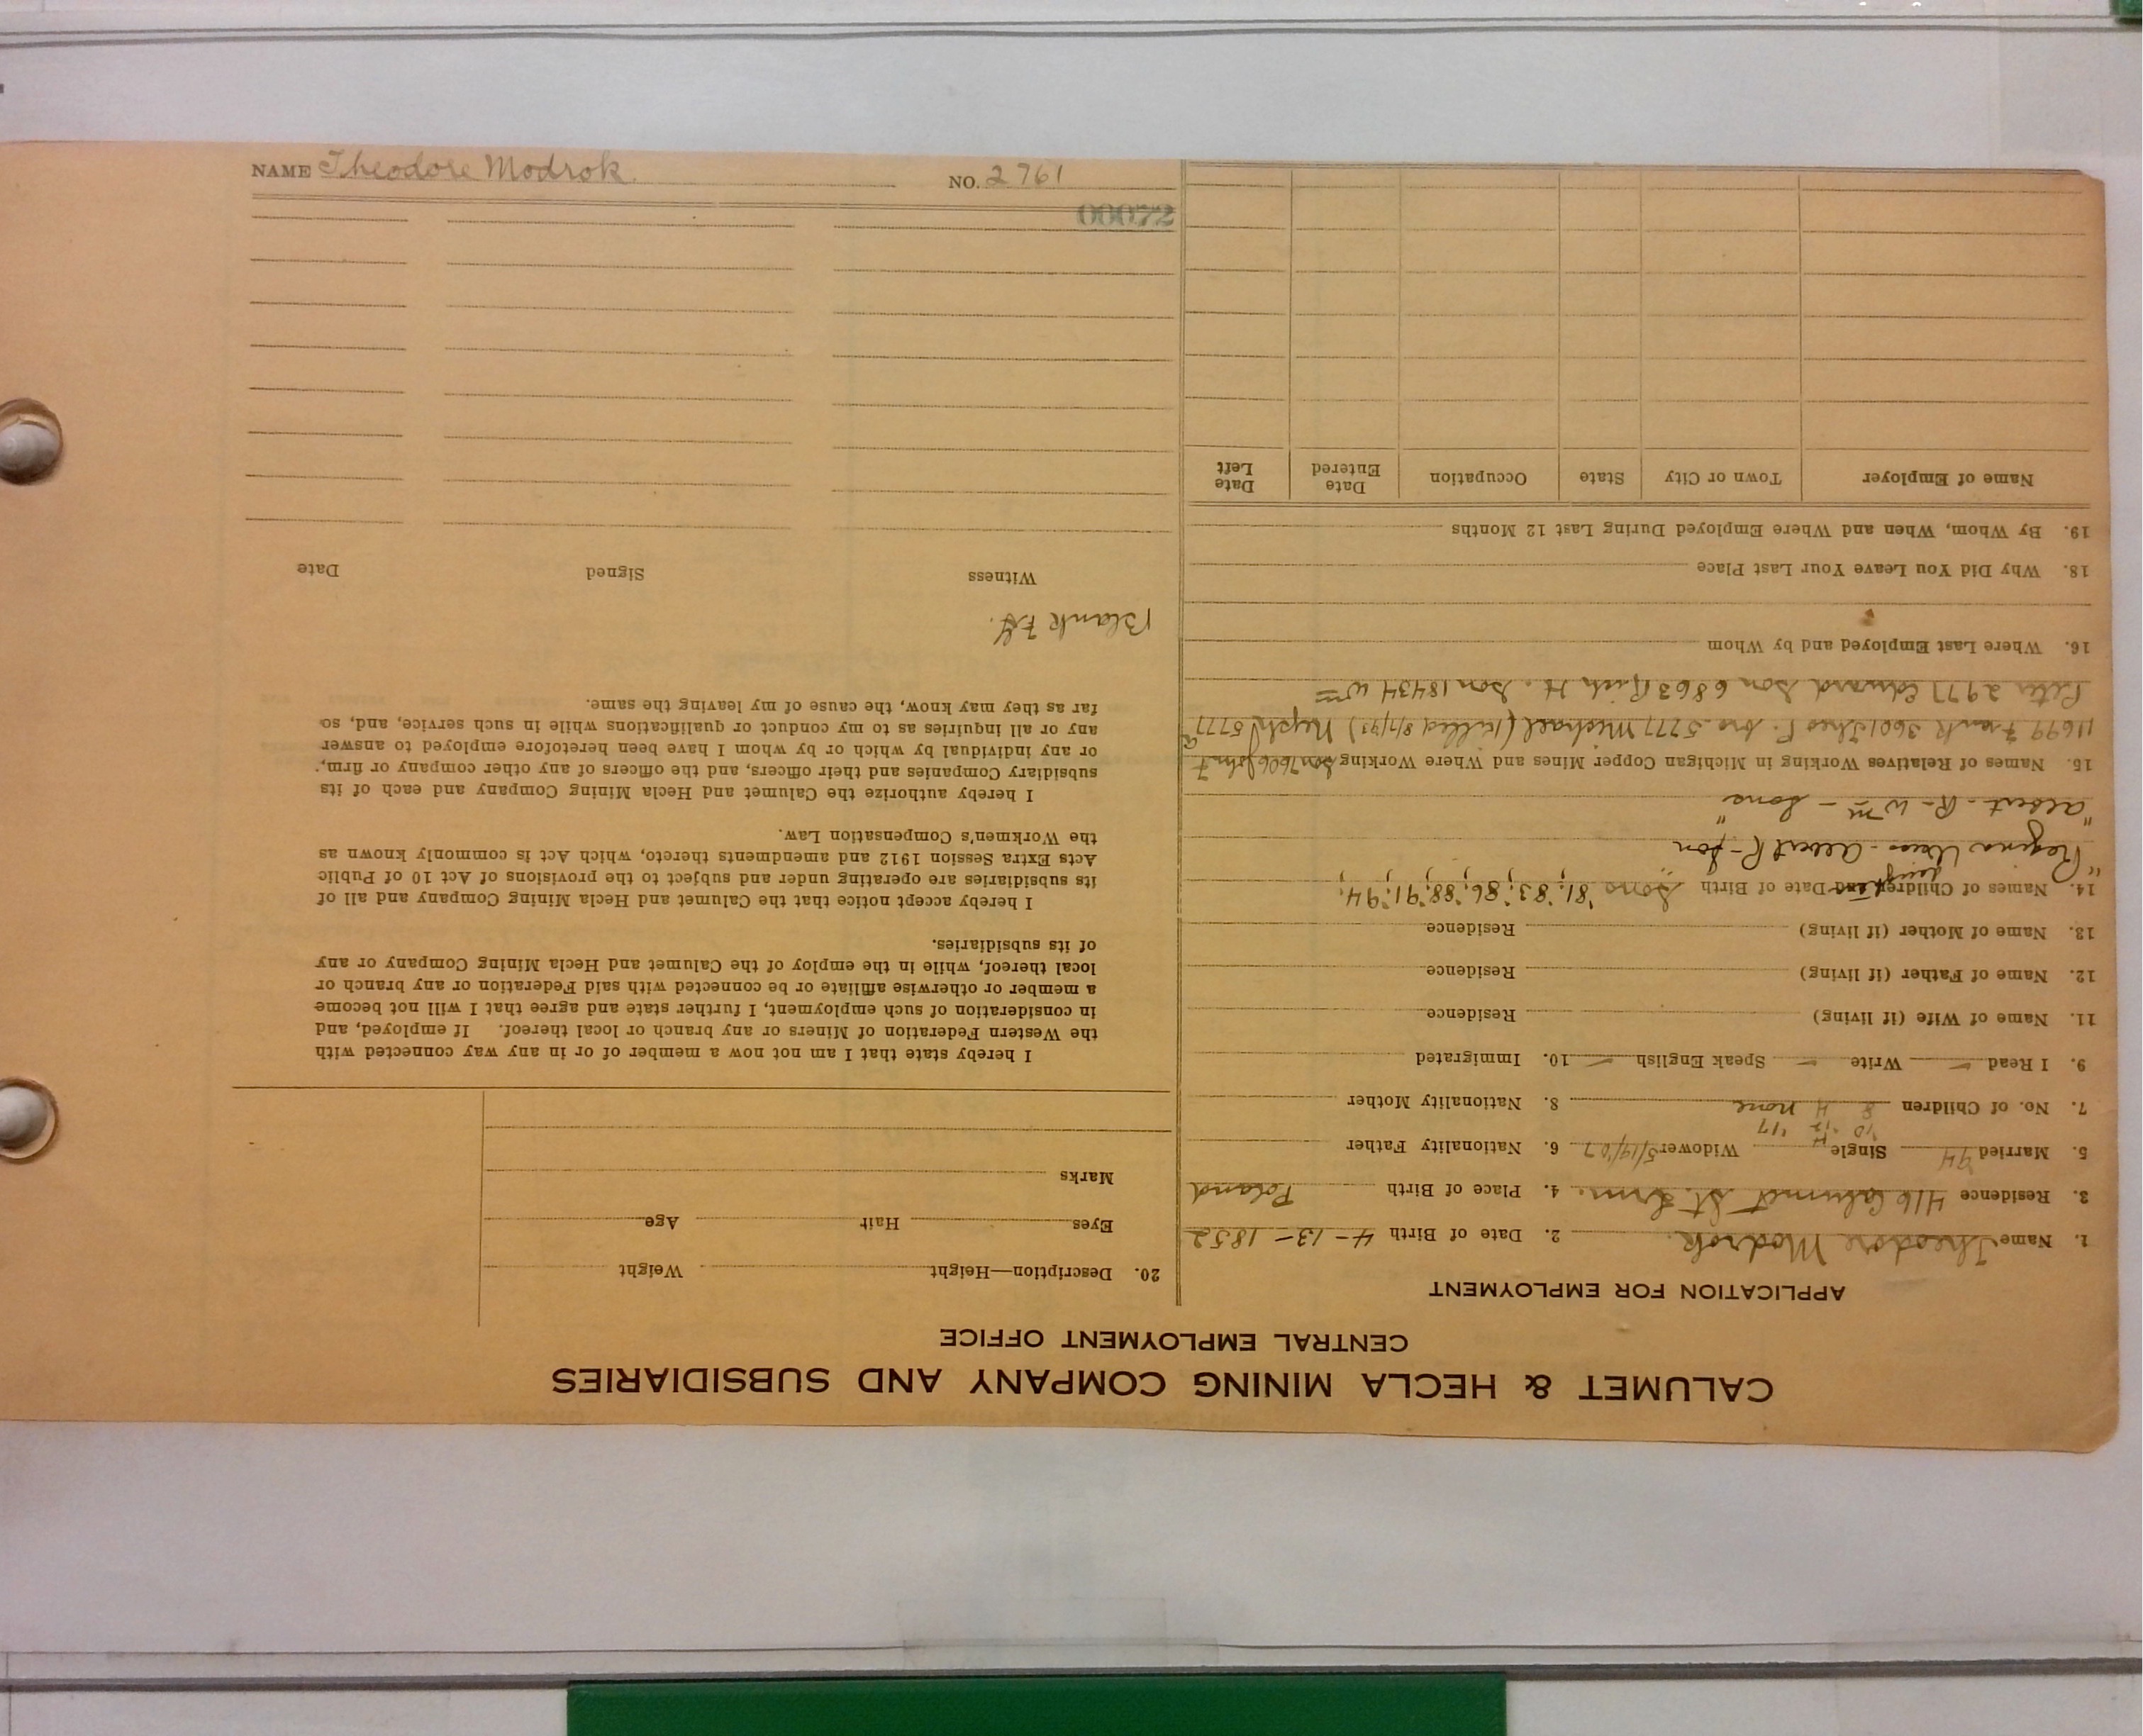 NAME Theodore Modrok NO. 2761
00072
CALUMET & HECLA MINING COMPANY AND SUBSIDIARIES
CENTRAL EMPLOYMENT OFFICE
APPLICATION FOR EMPLOYMENT
1. Name Theodore Modrok 2. Date of Birth 4-13-1852
3. Residence 416 Calumet St. 4. Place of Birth Poland
5. Married '74 Single Widower 5/19/07 6. Nationality Father
'10 '12 '17
7. No. of Children 8 4 none 8. Nationality Mother
9. I Read ✓ Write ✓ Speak English ✓ 10. Immigrated
11. Name of Wife (if living) Residence
12. Name of Father (if living) Residence
13. Name of Mother (if living) Residence
14. Names of Children and Date of Birth Sons '81; '83; '86; '88; '91; '94;
" Regina Albert R - Son
" Albert - R - Wm - Sons "
15. Names of Relatives Working in Michigan Copper Mines and Where Working Son 7606 John F
11699 Frank 3601 Theo P. bro 5777 Michael (Killed 8/7/93) Neph 5777
Peter 2977 Edward Son 6863 Rich H. Son 18434 Wm
16. Where Last Employed and by Whom
18. Why Did You Leave Your Last Place
19. By Whom, When and Where Employed During Last 12 Months
Name of Employer Town or City State Occupation Date Entered Date Left
20. Description—Height Weight
Eyes Hair Age
Marks
I hereby state that I am not now a member of or in any way connected with
the Western Federation of Miners or any branch or local thereof. If employed, and
in consideration of such employment, I further state and agree that I will not become
a member or otherwise affiliate or be connected with said Federation or any branch or
local thereof, while in the employ of the Calumet and Hecla Mining Company or any
of its subsidiaries.
I hereby accept notice that the Calumet and Hecla Mining Company and all of
its subsidiaries are operating under and subject to the provisions of Act 10 of Public
Acts Extra Session 1912 and amendments thereto, which Act is commonly known as
the Workmen's Compensation Law.
I hereby authorize the Calumet and Hecla Mining Company and each of its
subsidiary Companies and their officers, and the officers of any other company or firm,
or any individual by which or by whom I have been heretofore employed to answer
any or all inquiries as to my conduct or qualifications while in such service, and, so
far as they may know, the cause of my leaving the same.
Blank
Witness Signed Date